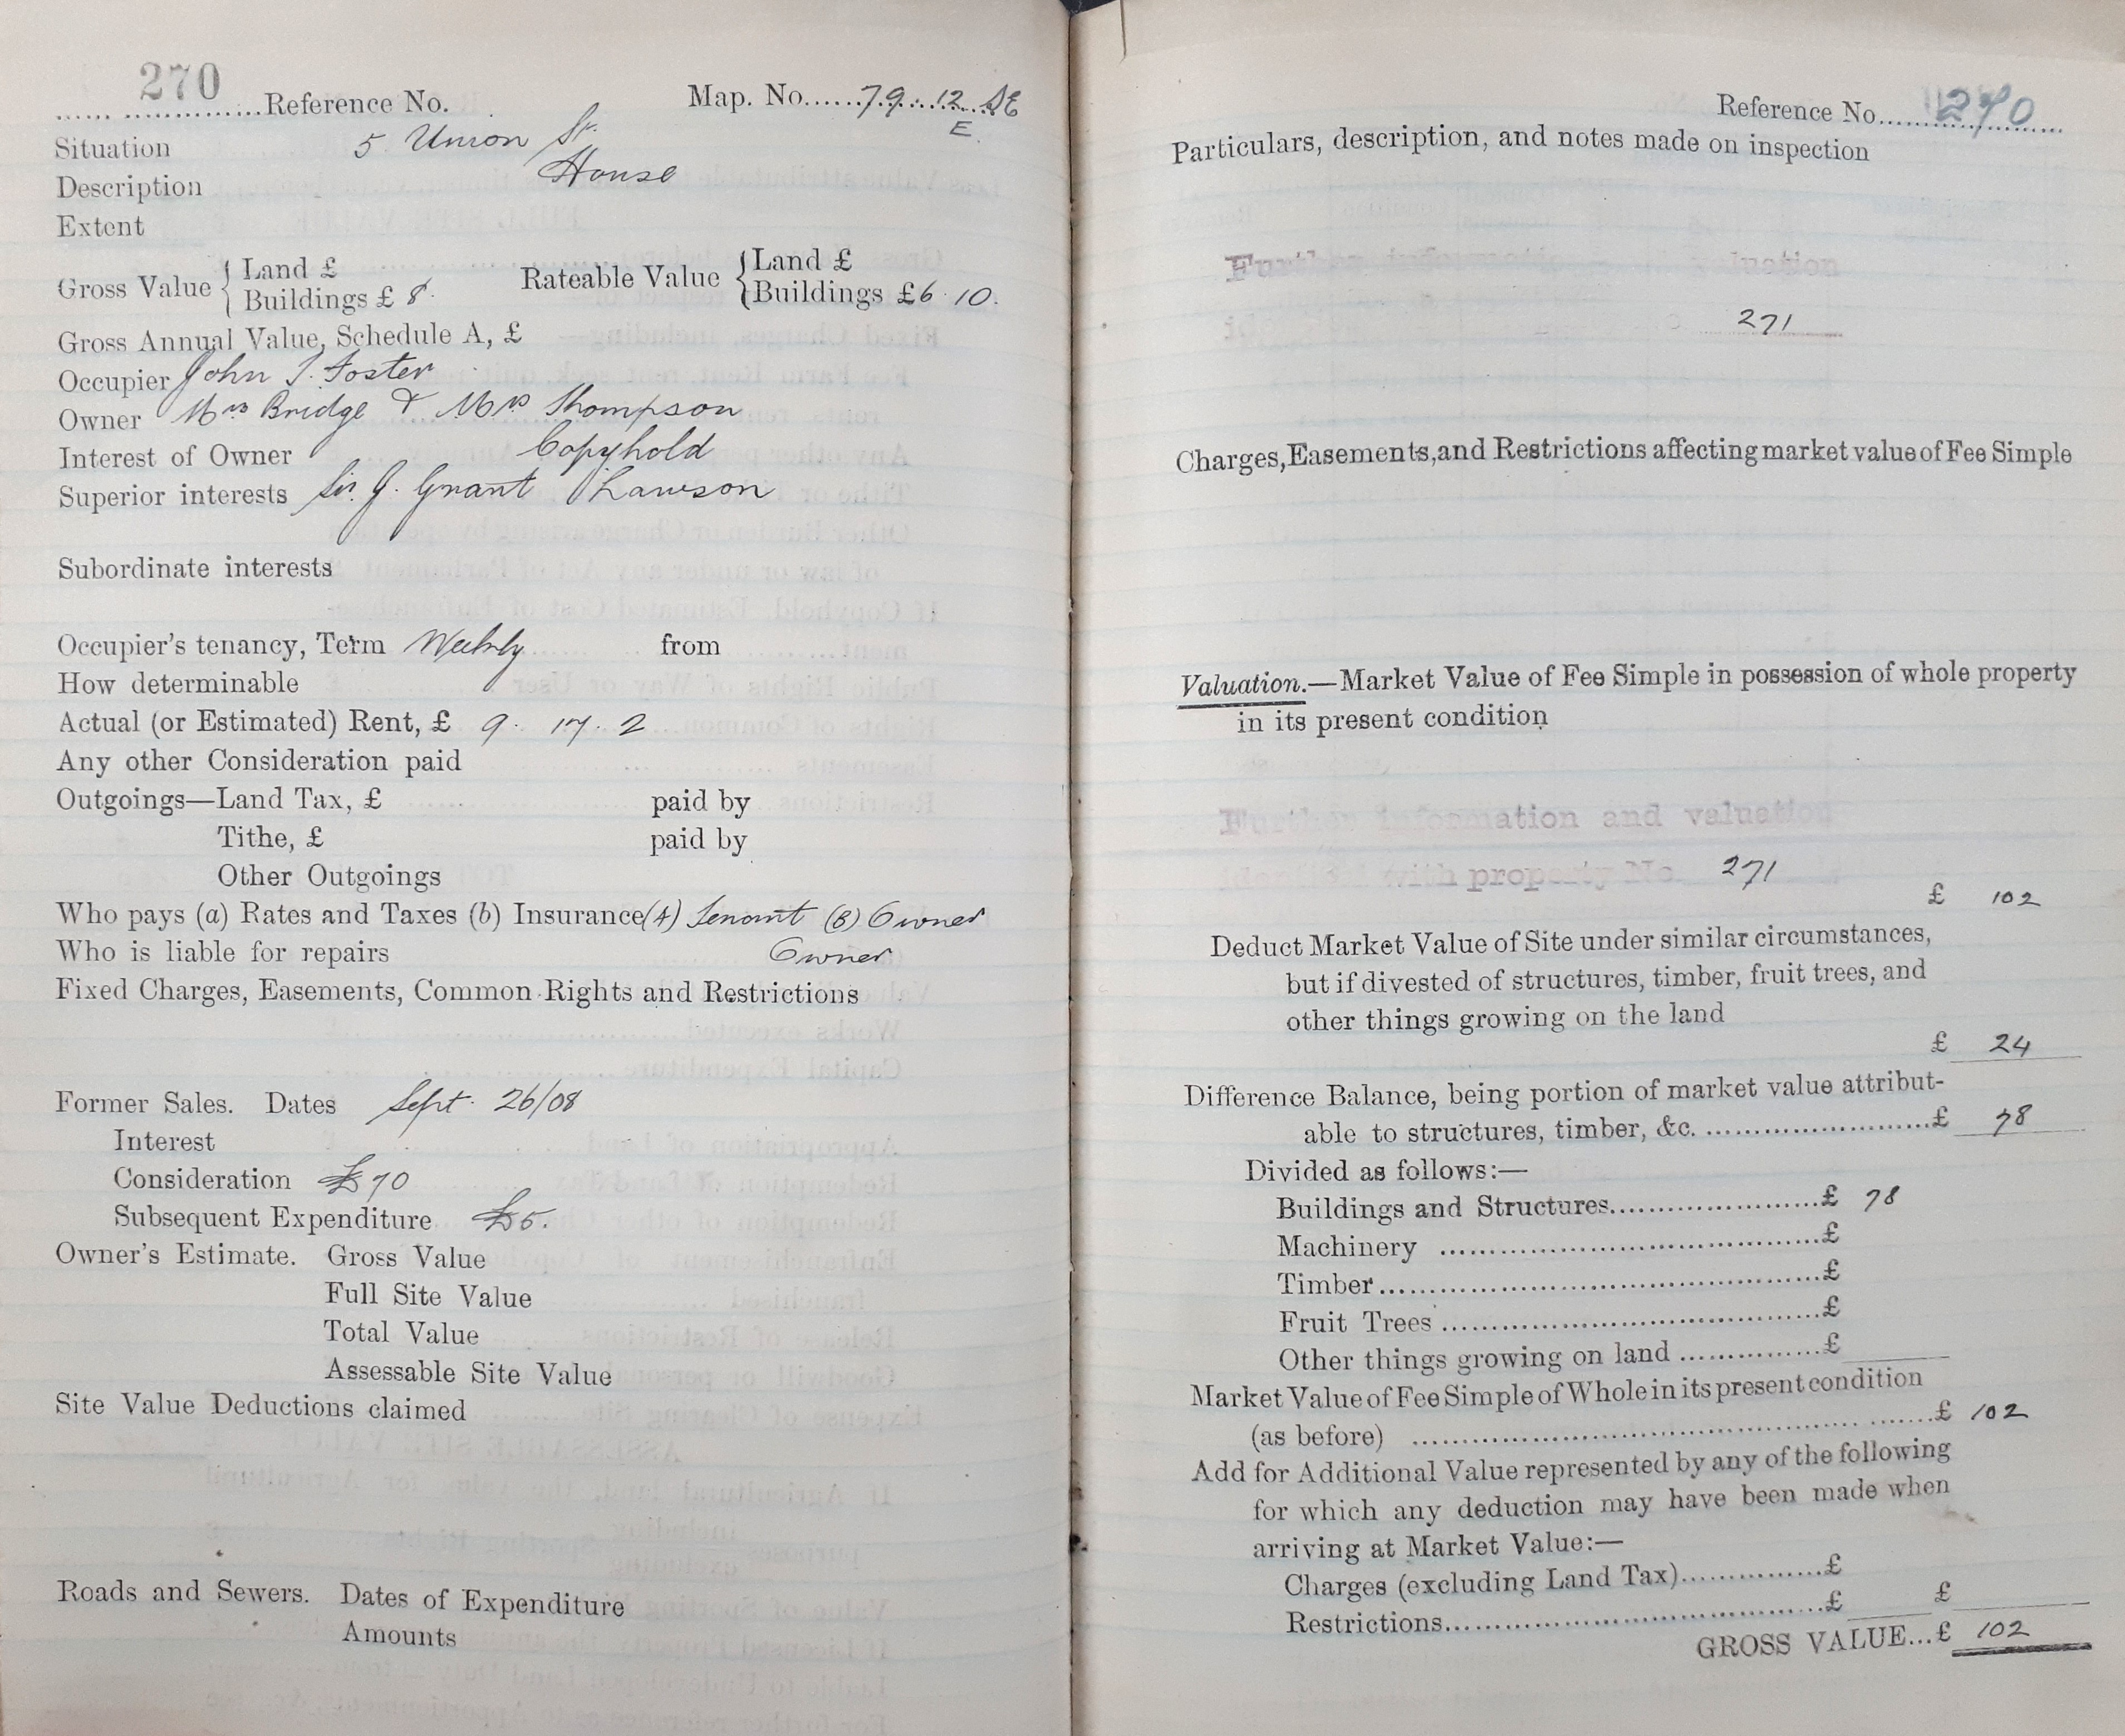 270
...... ..............Reference No. Map. No......79...12...SE
E
Situation 5 Union St.
Description House
Extent
Gross Value { Land £ Rateable Value { Land £
Buildings £ 8. Buildings £6 10.
Gross Annual Value, Schedule A, £
Occupier John T. Foster
Owner Mrs Bridge & Mrs Thompson
Interest of Owner Copyhold
Superior interests Sir J. Grant Lawson
Subordinate interests
Occupier's tenancy, Term Weekly from
How determinable
Actual (or Estimated) Rent, £ 9. 17. 2
Any other Consideration paid
Outgoings—Land Tax, £ paid by
Tithe, £ paid by
Other Outgoings
Who pays (a) Rates and Taxes (b) Insurance (A) Tenant (B) Owner
Who is liable for repairs Owner
Fixed Charges, Easements, Common Rights and Restrictions
Former Sales. Dates Sept. 26/08
Interest
Consideration £70
Subsequent Expenditure £5.
Owner's Estimate. Gross Value
Full Site Value
Total Value
Assessable Site Value
Site Value Deductions claimed
Roads and Sewers. Dates of Expenditure
Amounts
Reference No. 270
Particulars, description, and notes made on inspection
Further information luation
271
Charges, Easements, and Restrictions affecting market value of Fee Simple
Valuation.—Market Value of Fee Simple in possession of whole property
in its present condition
Further information and valuation
identified with property No 271
£ 102
Deduct Market Value of Site under similar circumstances,
but if divested of structures, timber, fruit trees, and
other things growing on the land
£ 24
Difference Balance, being portion of market value attribut-
able to structures, timber, &c. ........................£ 78
Divided as follows:—
Buildings and Structures........................£ 78
Machinery ........................£
Timber........................£
Fruit Trees ........................£
Other things growing on land ...............£
Market Value of Fee Simple of Whole in its present condition
(as before) ........................£ 102
Add for Additional Value represented by any of the following
for which any deduction may have been made when
arriving at Market Value:—
Charges (excluding Land Tax)...............£
Restrictions........................£ £
GROSS VALUE...£ 102